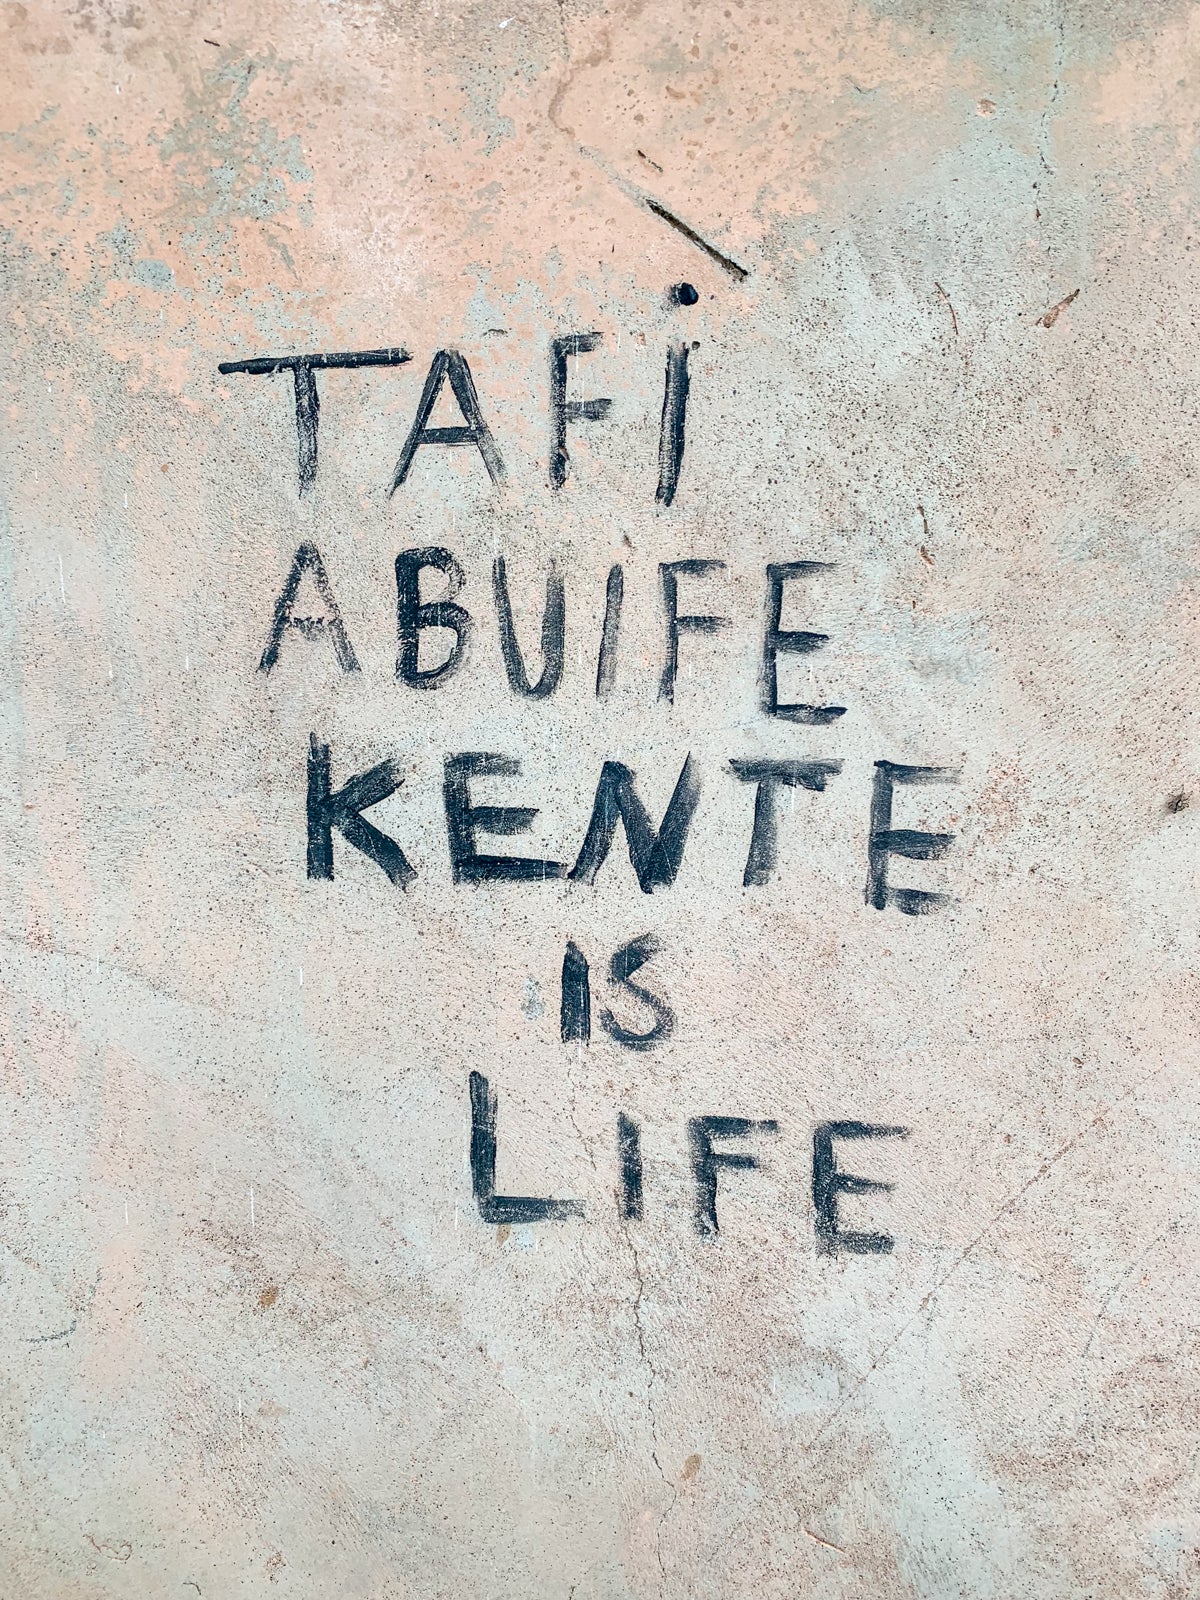 TAFi
ABUIFE
KENTE
IS
LIFE